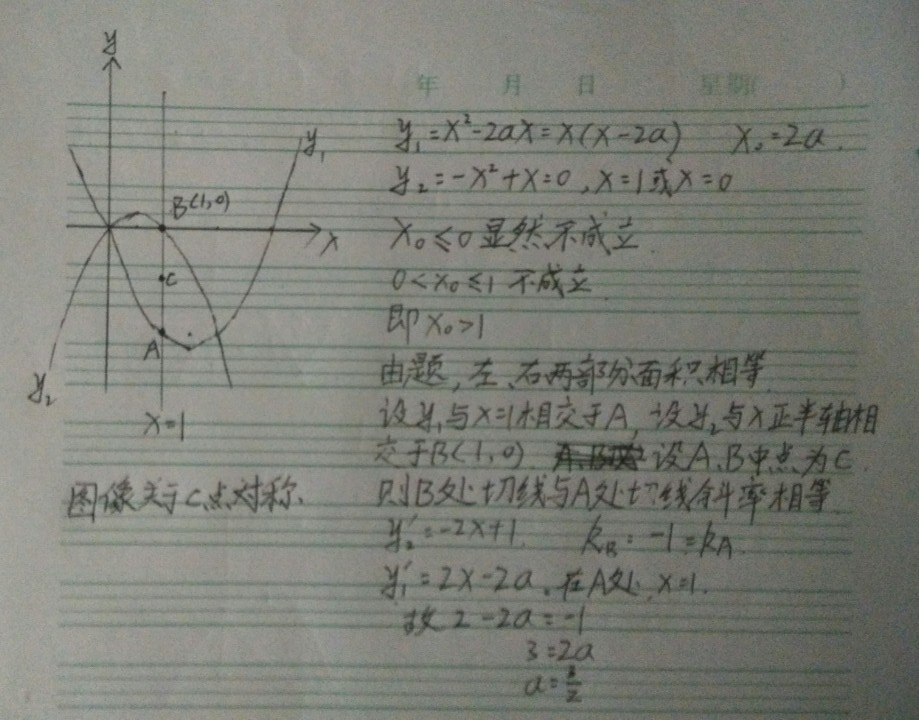 年 月 日 星期( )
y₁=x²-2ax=x(x-2a) x₀=2a.
y₂=-x²+x=0, x=1或x=0
x₀≤0显然不成立.
0<x₀≤1 不成立
即x₀>1
由题,左、右两部分面积相等
设y₁与x=1相交于A,设y₂与x正半轴相
交于B(1,0) 设A、B中点为C.
图像关于C点对称.
则B处切线与A处切线斜率相等
y₂'=-2x+1. k_B=-1=k_A.
y₁'=2x-2a.在A处,x=1.
故2-2a=-1
3=2a
a=3/2
y
y₁
B(1,0)
x
C
A
y₂
x=1